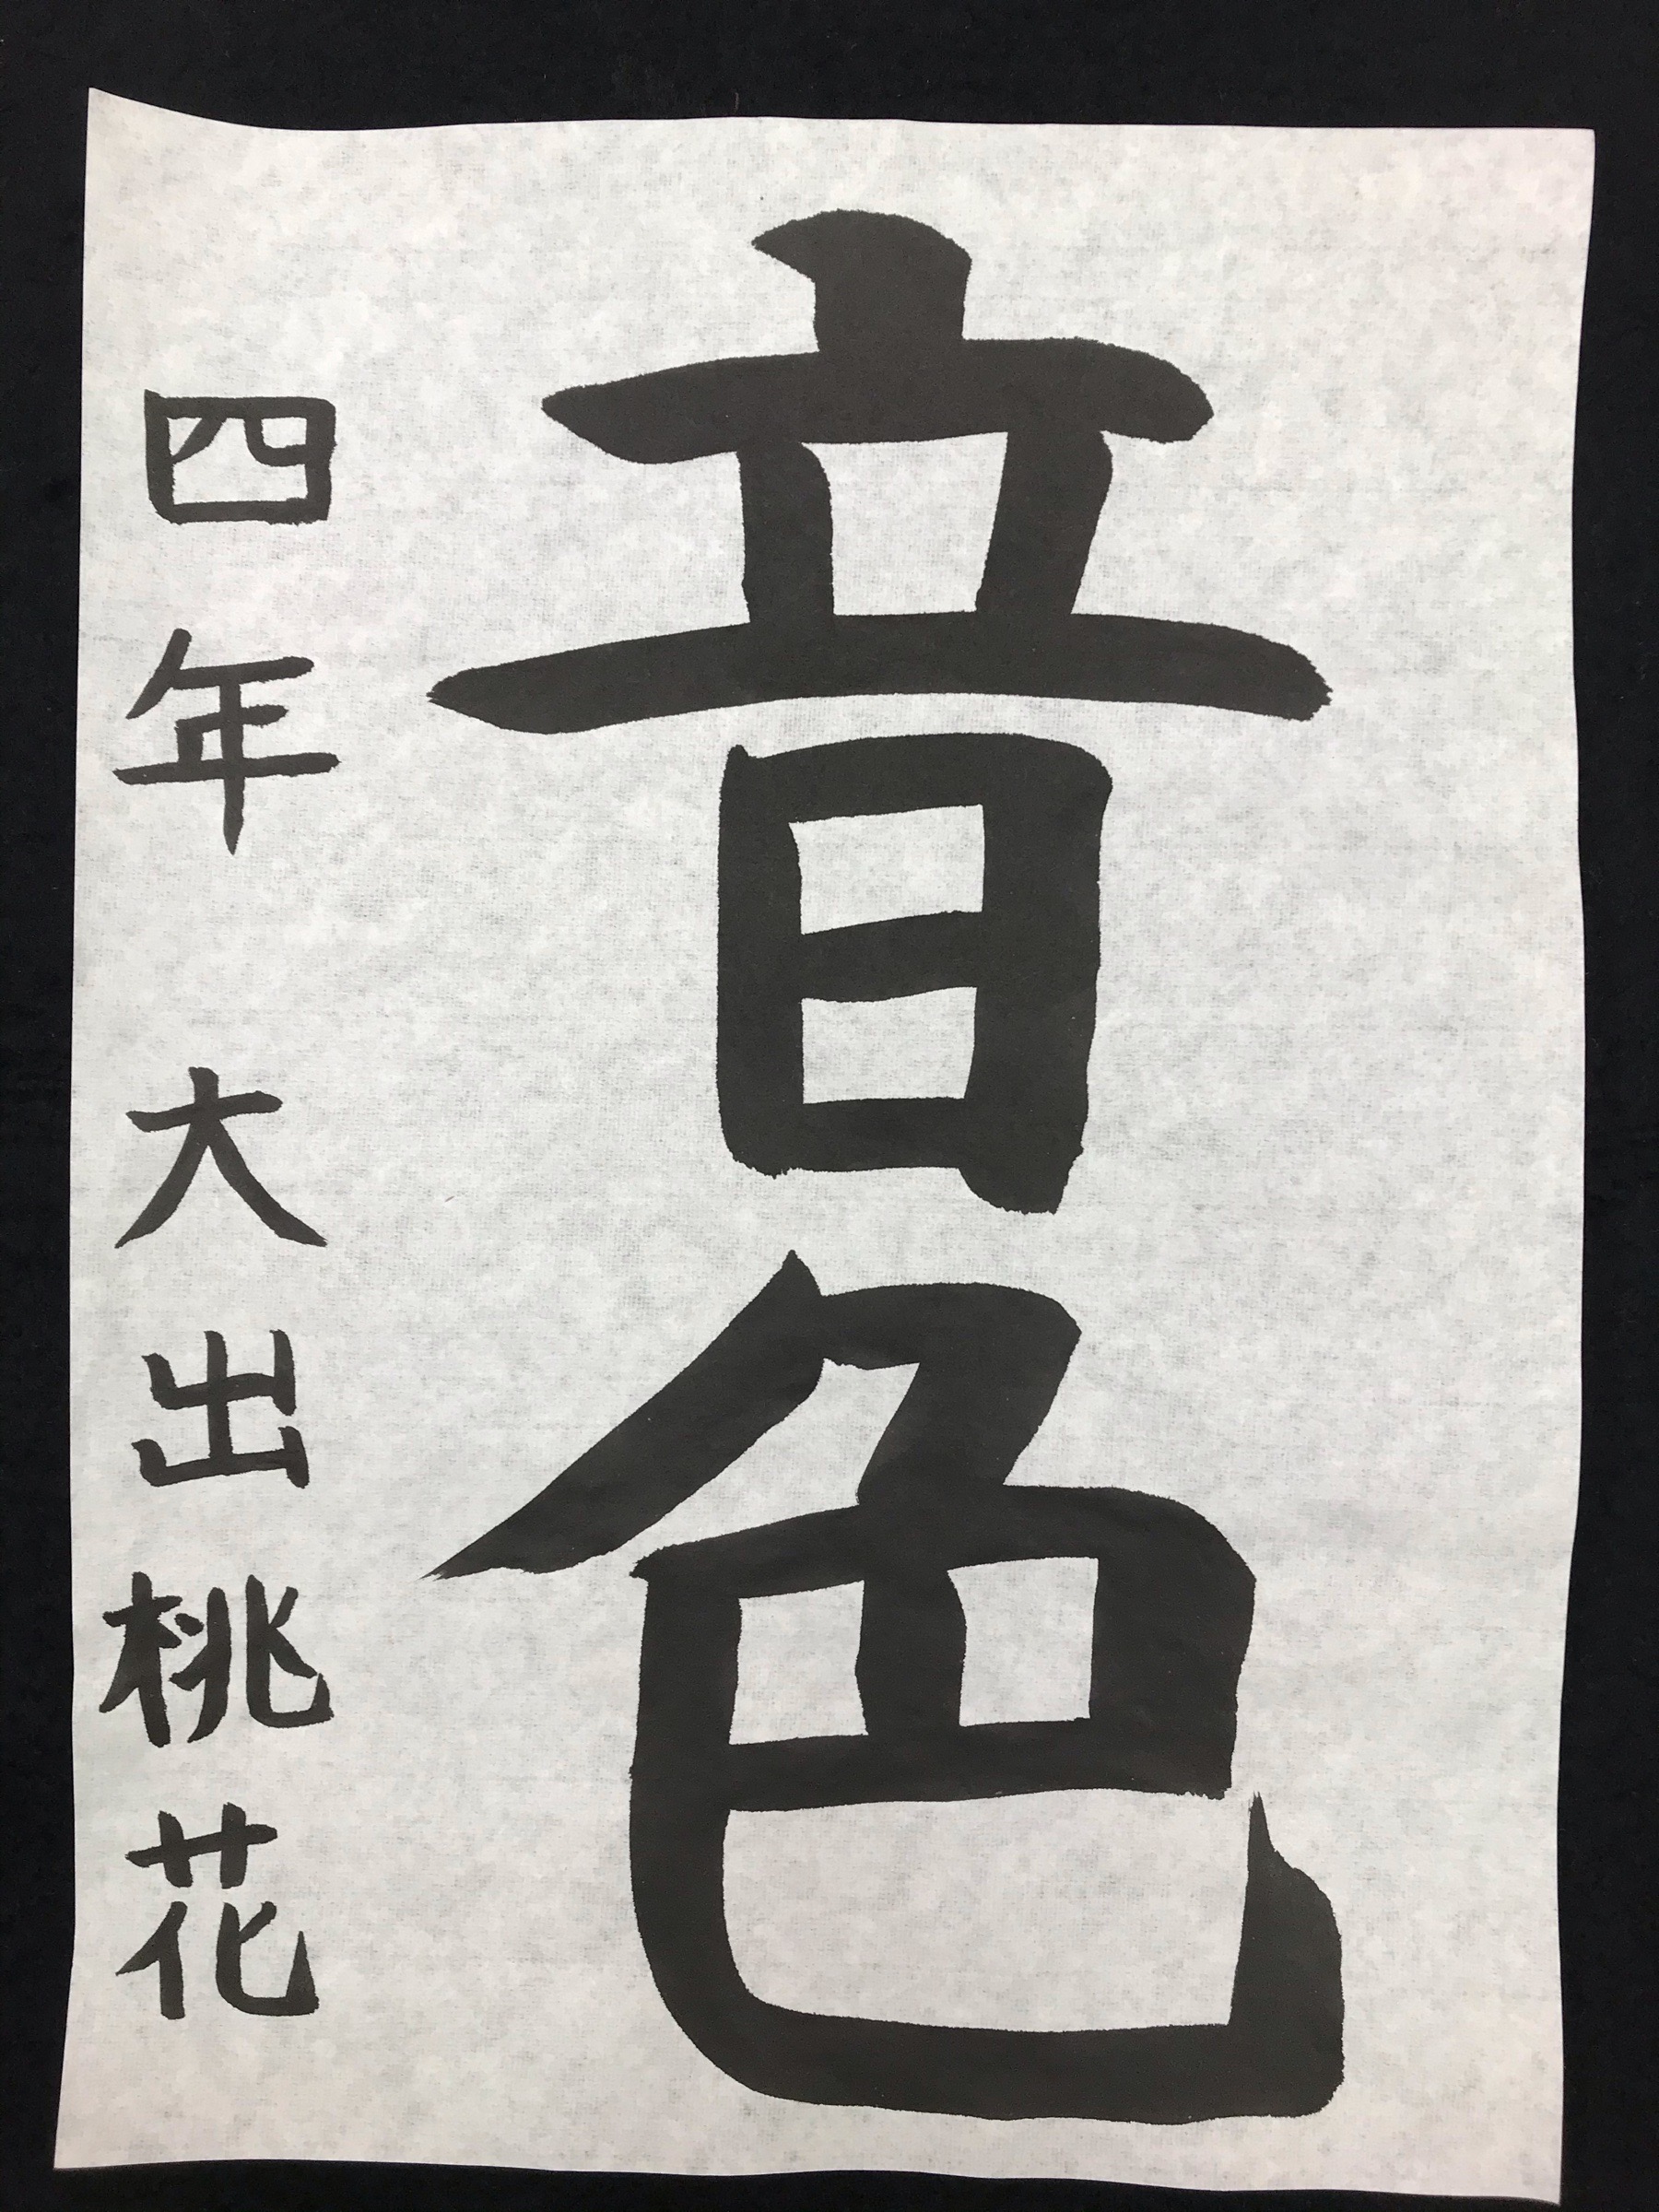 音色
四年 大出桃花